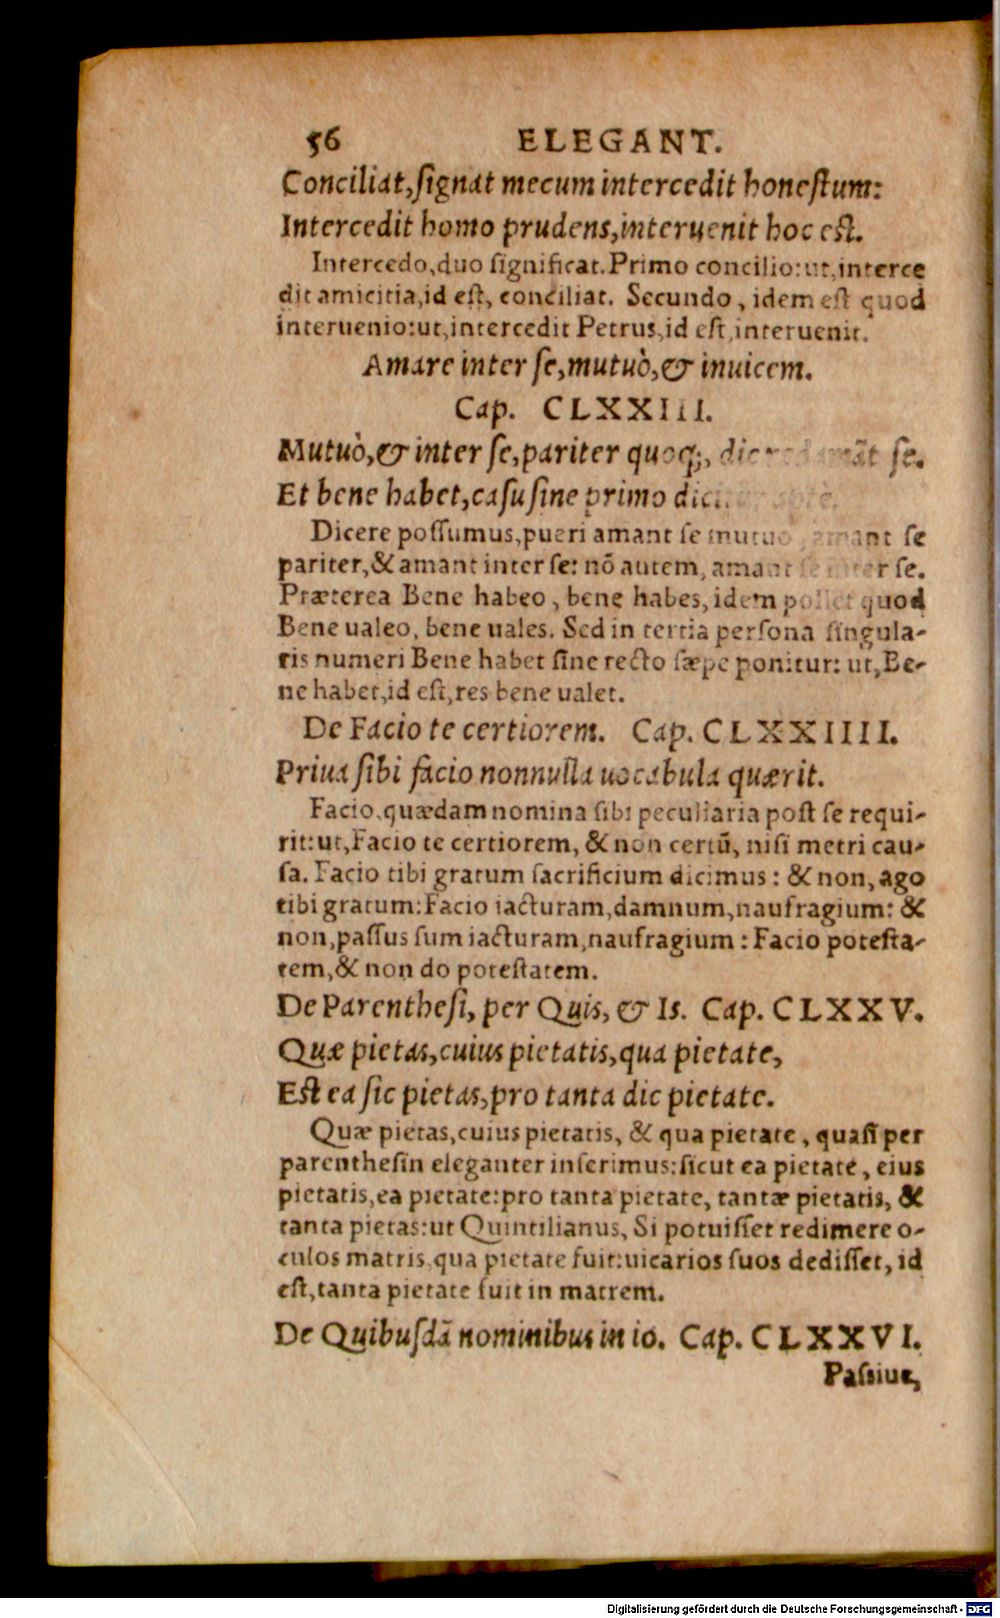 56 ELEGANT.
Conciliat,ſignat mecum intercedit honeſtum:
Intercedit homo prudens,interuenit hoc eſt.
Intercedo,duo ſignificat.Primo concilio:ut,interce
dit amicitia,id eſt, conciliat. Secundo , idem eſt quod
interuenio:ut,intercedit Petrus,id eſt,interuenit.
Amare inter ſe,mutuò,& inuicem.
Cap. CLXXIII.
Mutuò,& inter ſe,pariter quoq;, dic redamãt ſe.
Et bene habet,caſu ſine primo dicitur aptè.
Dicere poſſumus,pueri amant ſe mutuo , amant ſe
pariter,& amant inter ſe: nõ autem, amant ſe inter ſe.
Præterea Bene habeo , bene habes, idem pollet quod
Bene ualeo, bene uales. Sed in tertia perſona ſingula-
ris numeri Bene habet ſine recto ſæpe ponitur: ut,Be-
ne habet,id eſt,res bene ualet.
De Facio te certiorem. Cap. CLXXIIII.
Priua ſibi facio nonnulla uocabula quærit.
Facio,quædam nomina ſibi peculiaria poſt ſe requi-
rit:ut,Facio te certiorem, & non certũ, niſi metri cau-
ſa. Facio tibi gratum ſacrificium dicimus : & non, ago
tibi gratum:Facio iacturam,damnum,naufragium: &
non,paſſus ſum iacturam,naufragium : Facio poteſta-
tem,& non do poteſtatem.
De Parentheſi, per Quis, & Is. Cap. CLXXV.
Quæ pietas,cuius pietatis,qua pietate,
Eſt ea ſic pietas,pro tanta dic pietate.
Quæ pietas,cuius pietatis, & qua pietate , quaſi per
parentheſin eleganter inſerimus:ſicut ea pietate , eius
pietatis,ea pietate:pro tanta pietate, tantæ pietatis, &
tanta pietas:ut Quintilianus, Si potuiſſet redimere o-
culos matris,qua pietate fuit:uicarios ſuos dediſſet, id
eſt,tanta pietate fuit in matrem.
De Quibuſdã nominibus in io. Cap. CLXXVI.
Paſsiue,
Digitalisierung gefördert durch die Deutsche Forschungsgemeinschaft - DFG